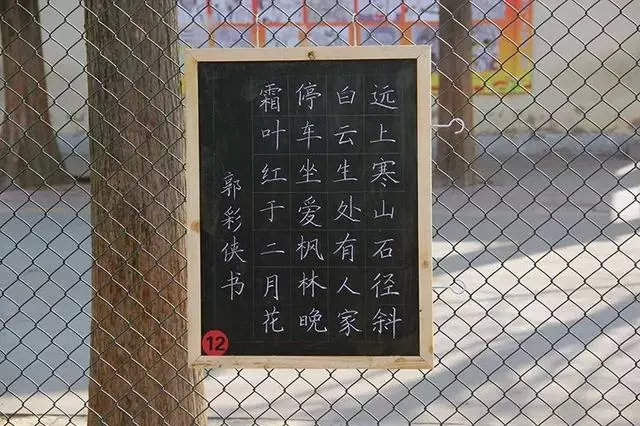 远上寒山石径斜
白云生处有人家
停车坐爱枫林晚
霜叶红于二月花
郭彩侠书
12